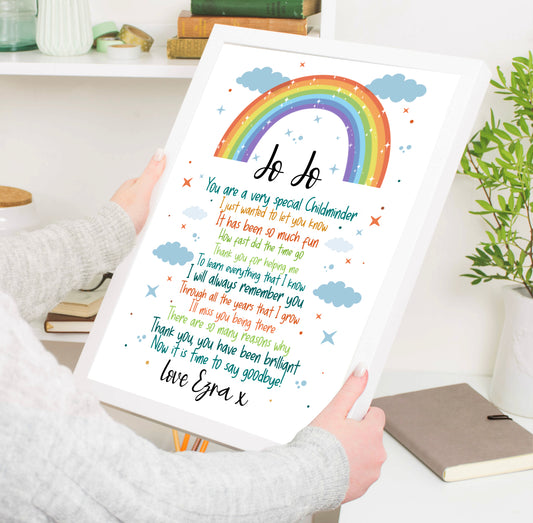 Jo Jo
You are a very special Childminder
I just wanted to let you know
It has been so much fun
How fast did the time go
Thank you for helping me
To learn everything that I know
I will always remember you
Through all the years that I grow
I'll miss you being there
There are so many reasons why
Thank you, you have been brilliant
Now it is time to say goodbye!
Love Ezra x